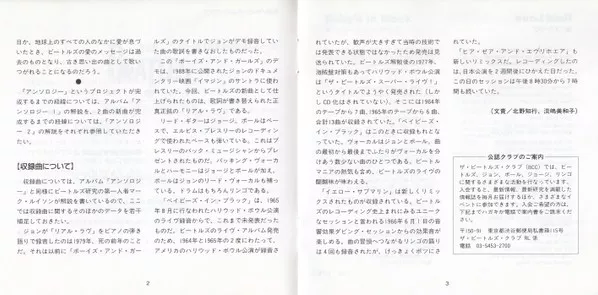 日か、地球上のすべての人のなかに愛が息づ
いたとき、ビートルズの愛のメッセージは過
去のものとなり、古き思い出の曲として歌い
つがれることになるのだろう。
●
「アンソロジー」というプロジェクトが完
成するまでの経緯については、アルバム『アン
ソロジー：1』の解説を、2曲の新曲が完
成するまでの経緯については、『アンソロジ
ー 2』の解説をそれぞれ参照していただき
たい。
【収録曲について】
収録曲については、アルバム『アンソロジ
ー』と同様にビートルズ研究の第一人者マー
ク・ルイソンが解説を書いているので、ここ
では収録曲に関するそのほかのデータを若干
補足しておきたい。
ジョンが「リアル・ラヴ」をピアノの弾き
語りで録音したのは1979年、死の前年のこと
だ。それは以前に「ボーイズ・アンド・ガー
ルズ」のタイトルでジョンがデモ録音してい
た曲の歌詞を書きなおしたものだった。
この「ボーイズ・アンド・ガールズ」のデ
モは、1988年に公開されたジョンのドキュメ
ンタリー映画『イマジン』のサントラに使わ
れていた。今回、ビートルズの新曲として仕
上げられたものは、歌詞が書き替えられた正
真正銘の「リアル・ラヴ」である。
リード・ギターはジョージ、ポールはベー
スで、エルビス・プレスリーのレコーディン
グで使われたベースも弾いている。これはプ
レスリーのバック・ミュージシャンからプレ
ゼントされたものだ。バッキング・ヴォーカ
ルとハーモニーはジョージとポールが加え、
ポールはジョンのリード・ヴォーカルも補っ
ている。ドラムはもちろんリンゴである。
「ベイビーズ・イン・ブラック」は、1965
年8月に行なわれたハリウッド・ボウル公演
のライヴ録音からで、これまで未発表だった
ものだ。ビートルズのライヴ・アルバム発売
のため、1964と1965年の2度にわたって、
アメリカのハリウッド・ボウル公演が録音さ
2
れていたが、歓声が大きすぎて当時の技術で
は発表できる状態ではなかったため発売は見
送られていた。ビートルズ解散後の1977年、
海賊盤対策もあってハリウッド・ボウル公演
は『ザ・ビートルズ・スーパー・ライヴ!』
というタイトルでようやく発売された（しか
しCD化はされていない）。そこには1964年
のテープから7曲、1965年のテープから6曲、
合計13曲が収録されていた。「ベイビーズ・
イン・ブラック」はこのときに収録もれとな
っていた。ヴォーカルはジョンとポール。曲
の最初から最後までふたりがヴォーカルを分
けあう数少ない曲のひとつである。ビートル
マニアの熱気も含め、ビートルズのライヴの
醍醐味が味わえる。
「イエロー・サブマリン」は新しくリミッ
クスされたものが収録されている。ビートル
ズのレコーディング史上まれにみるユニーク
なセッションと言われる1966年6月1日の音
響効果ダビング・セッションからの効果音が
楽しめる。曲の冒頭へつながるリンゴの語り
は4回も録音されたが、けっきょくボツにさ
れていた。
「ヒア・ゼア・アンド・エヴリホエア」も
新しいリミックスだ。レコーディングしたの
は、日本公演を2週間後にひかえた日だった。
この日のセッションは午後8時30分から7時
間も続いていた。
（文責／北野知行、流嶋美和子）
公認クラブのご案内
ザ・ビートルズ・クラブ (BCC) では、ビー
トルズ、ジョン、ポール、ジョージ、リンゴ
に関するさまざまな活動を行なっています。
入会すると、最新情報、最新研究を満載した
情報誌を毎月お届けするほか、さまざまなイ
ベントに参加できます。入会ご希望の方は、
下記までハガキか電話で案内書をご請求くだ
さい。
〒150-91 東京都渋谷郵便局私書箱115号
ザ・ビートルズ・クラブ RL 係
電話 03-5453-2700
3